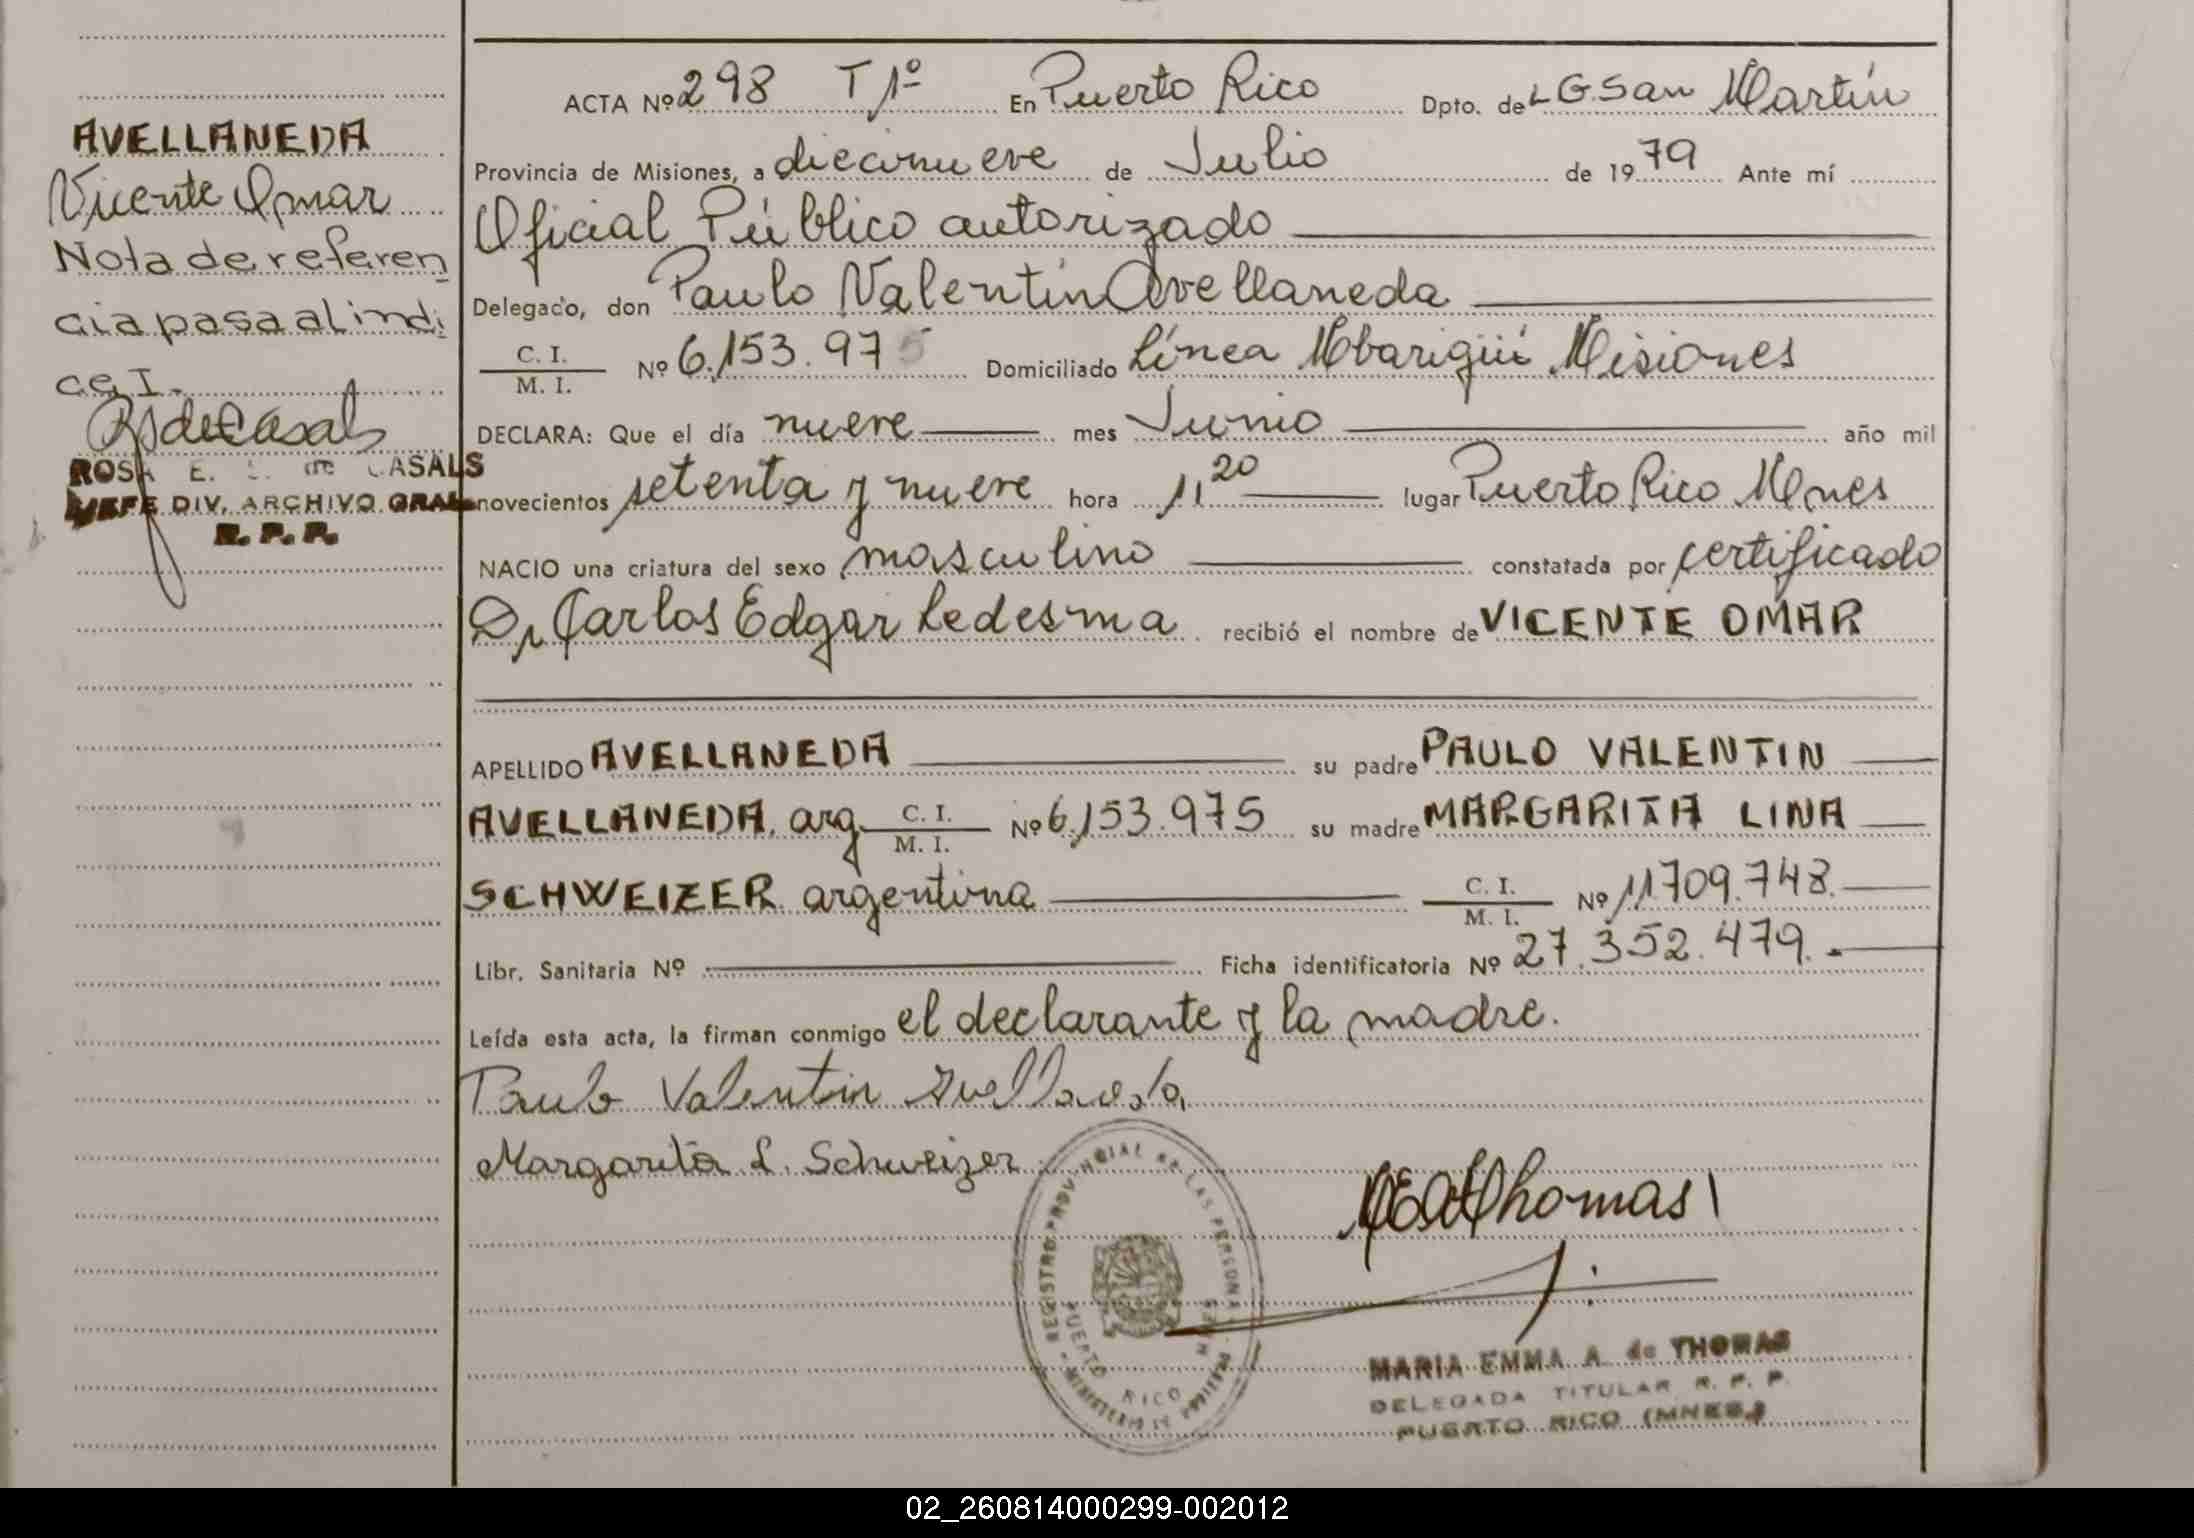 AVELLANEDA
Vicente Omar
Nota de referen
cia pasa al indi
ce I.-
RSdeCasals
ROSA E. de CASALS
JEFE DIV. ARCHIVO GRAL
R. P. P.
ACTA Nº 298 T 1º En Puerto Rico Dpto. de L G. San Martín
Provincia de Misiones, a diecinueve de Julio de 1979 Ante mí
Oficial Público autorizado
Delegado, don Paulo Valentín Avellaneda
C. I.
M. I. Nº 6.153.975 Domiciliado Línea Mbarigüí Misiones
DECLARA: Que el día nueve mes Junio año mil
novecientos setenta y nueve hora 11,20 lugar Puerto Rico Mnes
NACIO una criatura del sexo masculino constatada por certificado
Dr Carlos Edgar Ledesma recibió el nombre de VICENTE OMAR
APELLIDO AVELLANEDA su padre PAULO VALENTIN
AVELLANEDA, arg. C. I. M. I. Nº 6.153.975 su madre MARGARITA LINA
SCHWEIZER argentina C. I. M. I. Nº 11709.748.
Libr. Sanitaria Nº Ficha identificatoria Nº 27.352.479.-
Leída esta acta, la firman conmigo el declarante y la madre.
Paulo Valentin Avellaneda
Margarita L. Schweizer
REGISTRO PROVINCIAL DE LAS PERSONAS
PUERTO RICO
MEAThomas
MARIA EMMA A. de THOMAS
DELEGADA TITULAR R. P. P.
PUERTO RICO (MNES.)
02_260814000299-002012